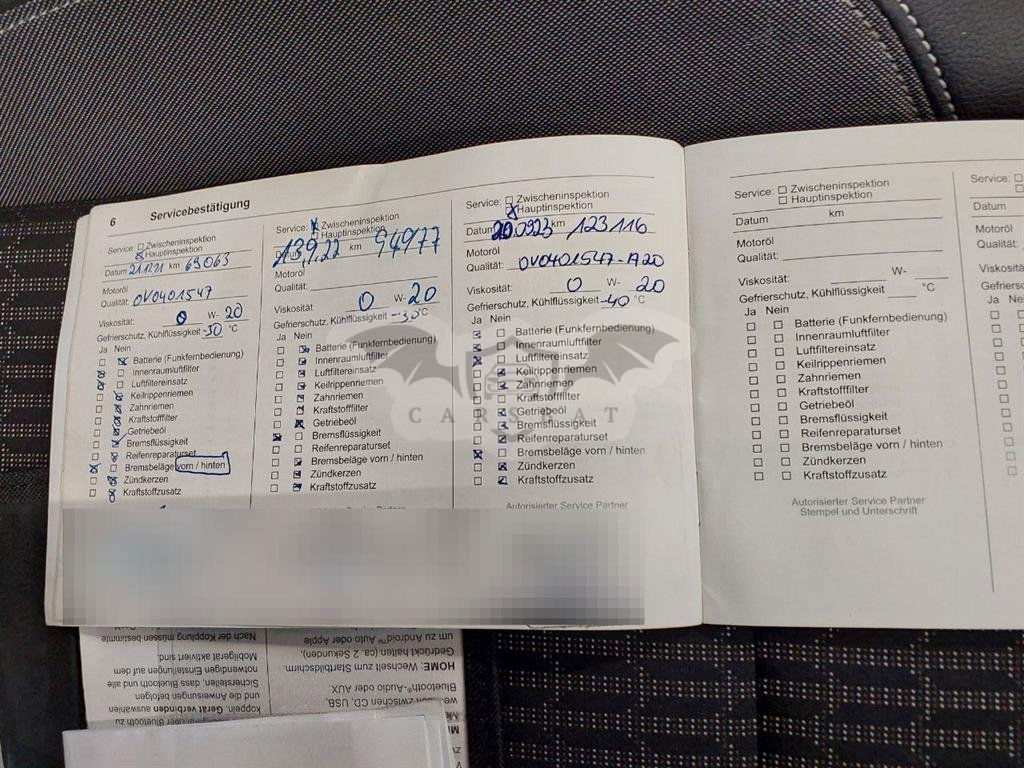 6 Servicebestätigung
Service: Zwischeninspektion
Hauptinspektion
Datum 21.12.21 km 69063
Motoröl
Qualität: 0V0401547
Viskosität: 0 W- 20
Gefrierschutz, Kühlflüssigkeit -30 °C
Ja Nein
Batterie (Funkfernbedienung)
Innenraumluftfilter
Luftfiltereinsatz
Keilrippenriemen
Zahnriemen
Kraftstofffilter
Getriebeöl
Bremsflüssigkeit
Reifenreparaturset
Bremsbeläge vorn / hinten
Zündkerzen
Kraftstoffzusatz
Service: Zwischeninspektion
Hauptinspektion
13.9.22 km 94977
Motoröl
Qualität:
Viskosität: 0 W- 20
Gefrierschutz, Kühlflüssigkeit -35 °C
Ja Nein
Batterie (Funkfernbedienung)
Innenraumluftfilter
Luftfiltereinsatz
Keilrippenriemen
Zahnriemen
Kraftstofffilter
Getriebeöl
Bremsflüssigkeit
Reifenreparaturset
Bremsbeläge vorn / hinten
Zündkerzen
Kraftstoffzusatz
Service: Zwischeninspektion
Hauptinspektion
Datum 20.0923 km 123116
Motoröl
Qualität: 0V0401547-A20
Viskosität: 0 W- 20
Gefrierschutz, Kühlflüssigkeit -40 °C
Ja Nein
Batterie (Funkfernbedienung)
Innenraumluftfilter
Luftfiltereinsatz
Keilrippenriemen
Zahnriemen
Kraftstofffilter
Getriebeöl
Bremsflüssigkeit
Reifenreparaturset
Bremsbeläge vorn / hinten
Zündkerzen
Kraftstoffzusatz
Autorisierter Service Partner
Service: Zwischeninspektion
Hauptinspektion
Datum km
Motoröl
Qualität:
Viskosität: W-
Gefrierschutz, Kühlflüssigkeit °C
Ja Nein
Batterie (Funkfernbedienung)
Innenraumluftfilter
Luftfiltereinsatz
Keilrippenriemen
Zahnriemen
Kraftstofffilter
Getriebeöl
Bremsflüssigkeit
Reifenreparaturset
Bremsbeläge vorn / hinten
Zündkerzen
Kraftstoffzusatz
Autorisierter Service Partner
Stempel und Unterschrift
Service:
Datum
Motoröl
Qualität:
Ja
CARSBAT
um zu Android™ Auto oder Apple
Gedrückt halten (ca. 2 Sekunden),
HOME: Wechsel zum Startbildschirm.
Bluetooth®-Audio oder AUX
zwischen CD, USB,
Nach der Kopplung müssen bestimmte
Mobilgerät aktiviert sind.
notwendigen Einstellungen auf dem
Sicherstellen, dass Bluetooth und alle
und die Anweisungen befolgen
koppeln, Gerät verbinden auswählen